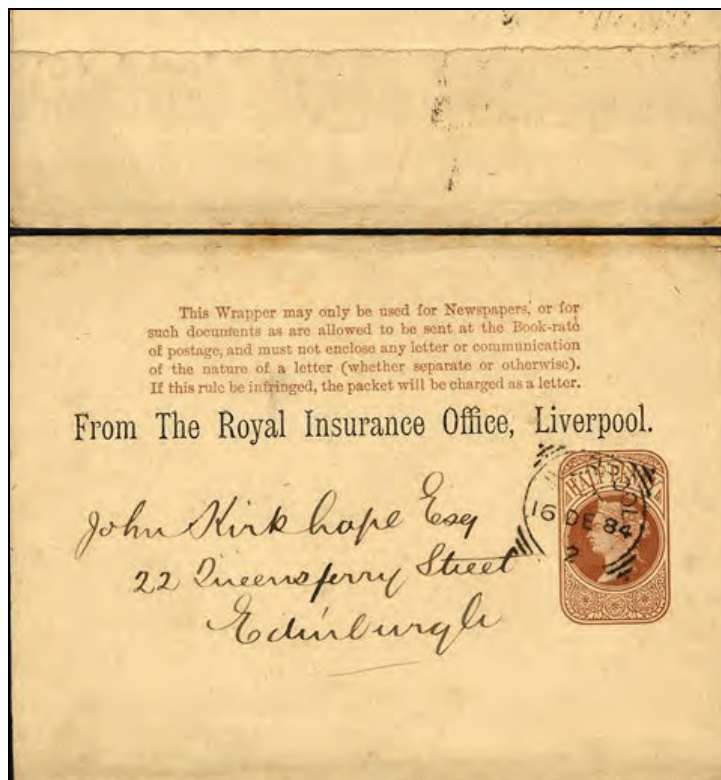 This Wrapper may only be used for Newspapers, or for
such documents as are allowed to be sent at the Book-rate
of postage, and must not enclose any letter or communication
of the nature of a letter (whether separate or otherwise).
If this rule be infringed, the packet will be charged as a letter.
From The Royal Insurance Office, Liverpool.
John Kirkhope Esq
22 Queensferry Street
Edinburgh
HALFPENNY
16 DE 84
2